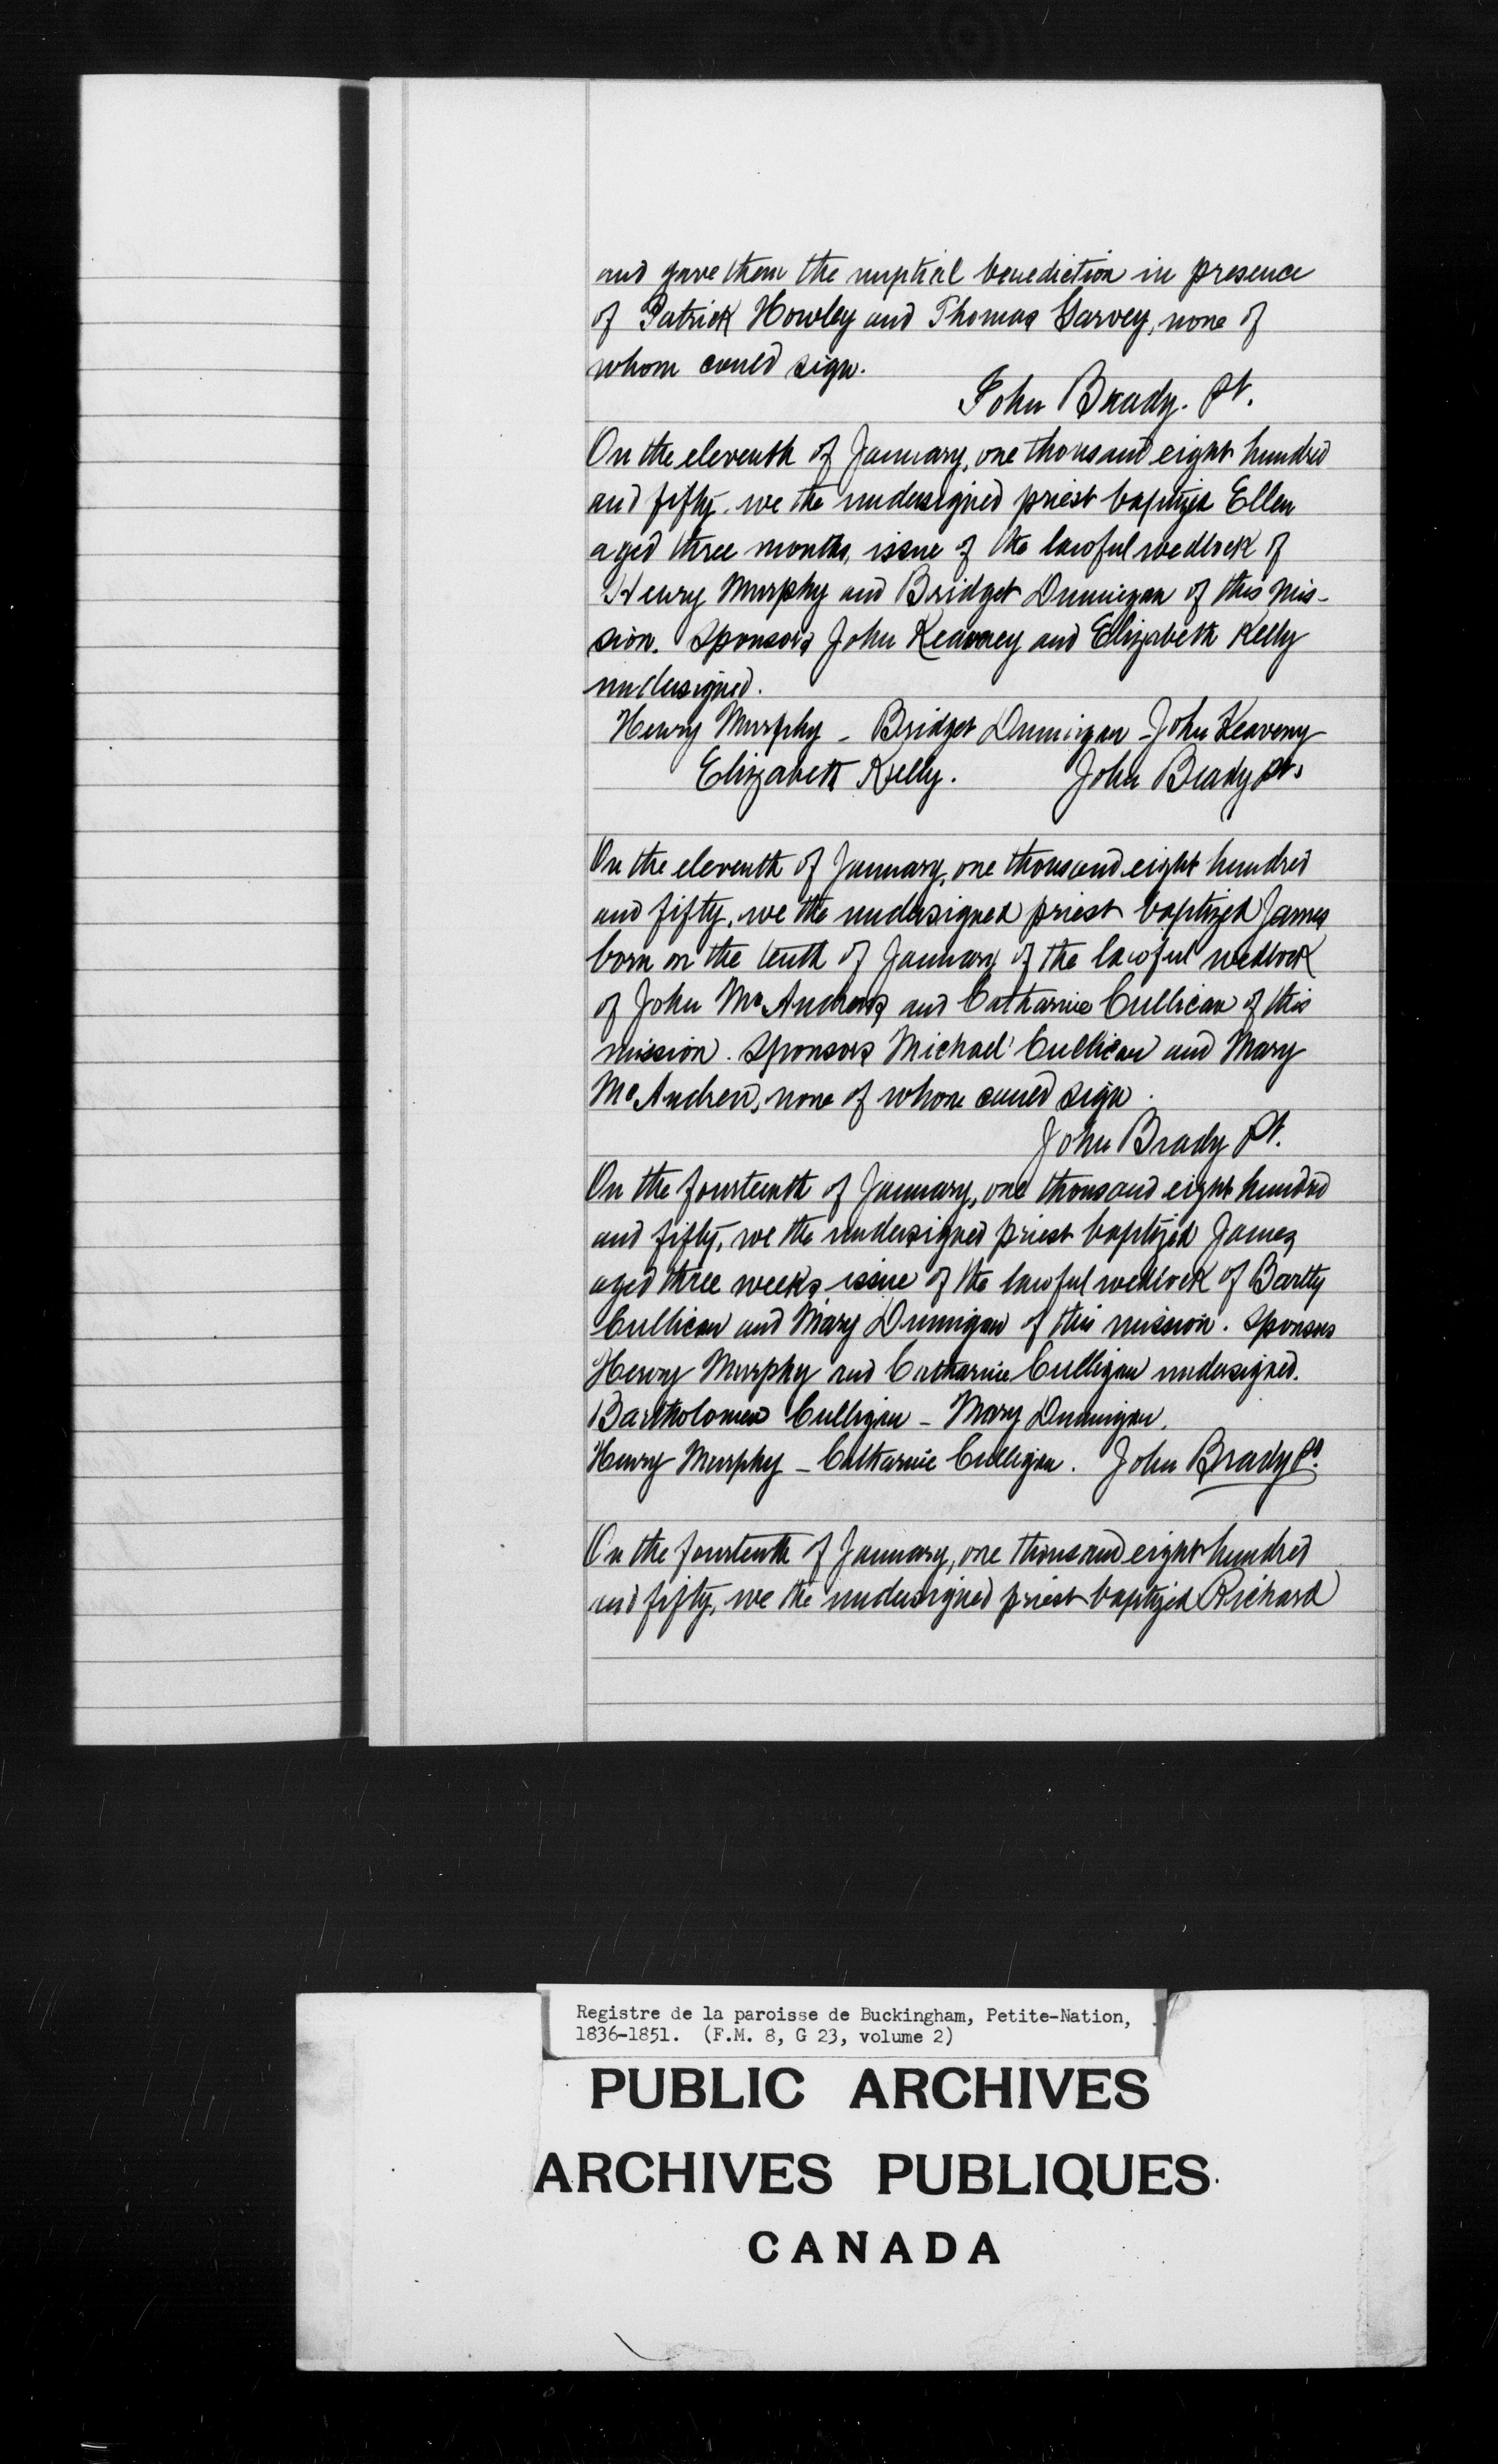 and gave them the nuptial benediction in presence
of Patrick Howley and Thomas Garvey, none of
whom could sign.
John Brady. Pt.
On the eleventh of January, one thousand eight hundred
and fifty, we the undersigned priest baptized Ellen
aged three months, issue of the lawful wedlock of
Henry Murphy and Bridget Dunnigan of this mis-
sion. Sponsors John Keaveney and Elizabeth Kelly
undersigned.
Henry Murphy - Bridget Dunnigan - John Keaveny
Elizabeth Kelly. John Brady Pt.
On the eleventh of January, one thousand eight hundred
and fifty, we the undersigned priest baptized James
born on the tenth of January of the lawful wedlock
of John McAndrews and Catharine Cullican of this
mission. Sponsors Michael Cullican and Mary
McAndrew, none of whom could sign.
John Brady Pt.
On the fourteenth of January, one thousand eight hundred
and fifty, we the undersigned priest baptized James
aged three weeks, issue of the lawful wedlock of Bartly
Cullican and Mary Dunnigan of this mission. Sponsors
Henry Murphy and Catharine Culligan undersigned.
Bartholomew Culligan - Mary Dunnigan.
Henry Murphy - Catharine Culligan. John Brady Pt.
On the fourteenth of January, one thousand eight hundred
and fifty, we the undersigned priest baptized Richard
Registre de la paroisse de Buckingham, Petite-Nation,
1836-1851. (F.M. 8, G 23, volume 2)
PUBLIC ARCHIVES
ARCHIVES PUBLIQUES
CANADA